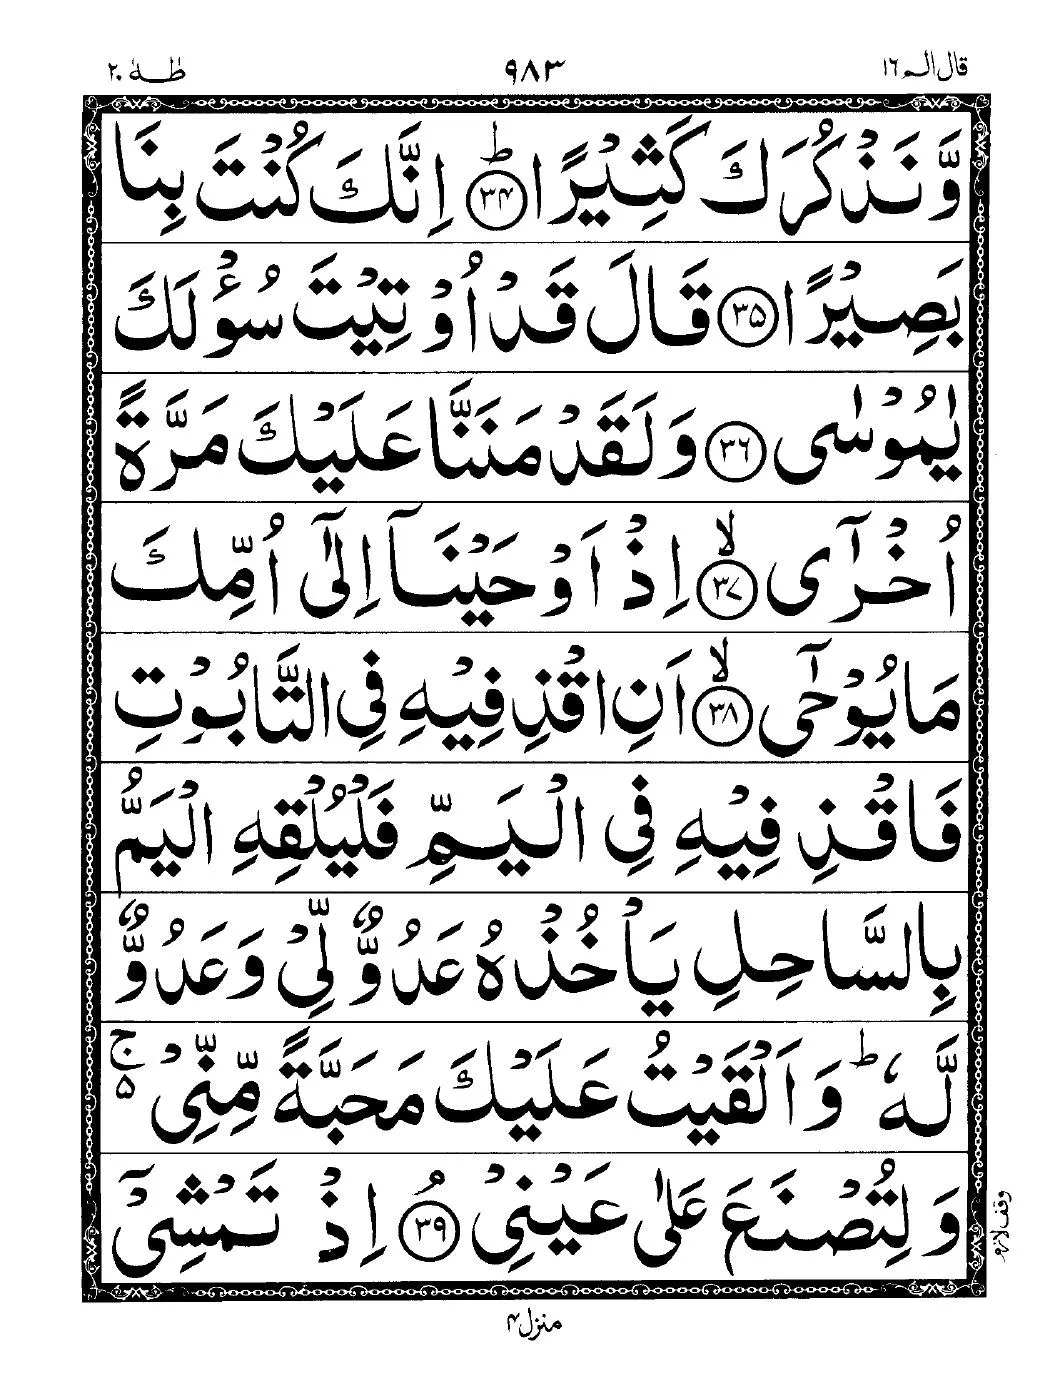 قال الم ١٦ ٩٨٣ طٰهٰ ٢٠
وَّنَذْكُرَكَ كَثِيْرًا ؕ ﴿۳۴﴾ اِنَّكَ كُنْتَ بِنَا
بَصِيْرًا ﴿۳۵﴾ قَالَ قَدْ اُوْتِيْتَ سُؤْلَكَ
يٰمُوْسٰى ﴿۳۶﴾ وَلَقَدْ مَنَنَّا عَلَيْكَ مَرَّةً
اُخْرٰٓى ۙ ﴿۳۷﴾ اِذْ اَوْحَيْنَاۤ اِلٰٓى اُمِّكَ
مَا يُوْحٰٓى ۙ ﴿۳۸﴾ اَنِ اقْذِفِيْهِ فِى التَّابُوْتِ
فَاقْذِفِيْهِ فِى الْيَمِّ فَلْيُلْقِهِ الْيَمُّ
بِالسَّاحِلِ يَاْخُذْهُ عَدُوٌّ لِّىْ وَعَدُوٌّ
لَّهٗ ؕ وَاَلْقَيْتُ عَلَيْكَ مَحَبَّةً مِّنِّىْ ۚ ۵
وَلِتُصْنَعَ عَلٰى عَيْنِىْ ۘ ﴿۳۹﴾ اِذْ تَمْشِىْۤ
وقف لازم
منزل ۴